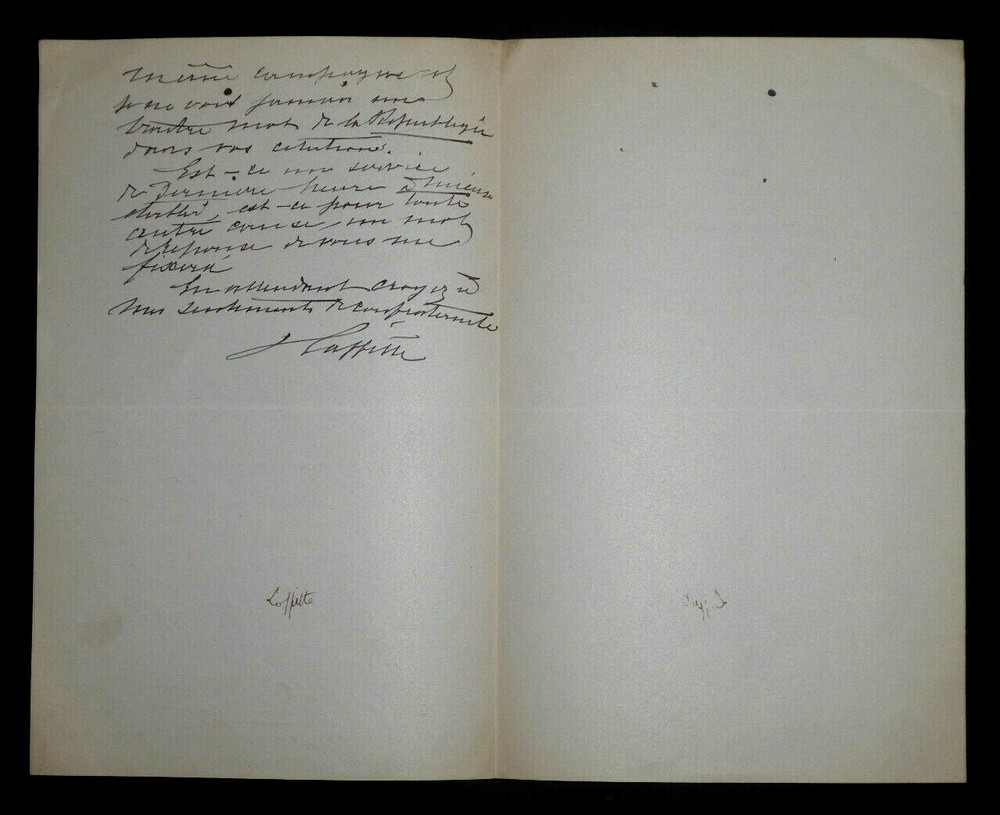 même campagne et
je ne vois jamais un
traitre mot de la République
dans vos citations.
Est-ce un service
de dernière heure à
est-ce pour toute
autre cause, un mot
de réponse de vous me
fixera
En attendant croyez à
mes sentiments de confraternité
J Laffitte
Laffitte